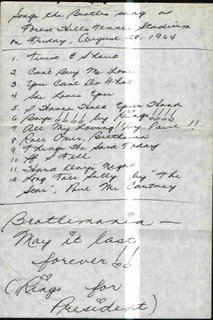 Songs the Beatles sang at
Forest Hills Tennis Stadium
on Friday, August 28, 1964
1. Twist & Shout
2. Can't Buy Me Love
3. You Can't Do That
4. She Loves You
5. I Wanna Hold Your Hand
6. Boys!!!!! by Ringo!!!!
7. All My Loving!! by Paul!!
8. Roll Over Beethoven
9. Things We Said Today
10. If I Fell
11. Hard Day's Night
12. Long Tall Sally by "the
Star", Paul McCartney
Beatlemania —
May it last
forever!!
(Ringo for
President)